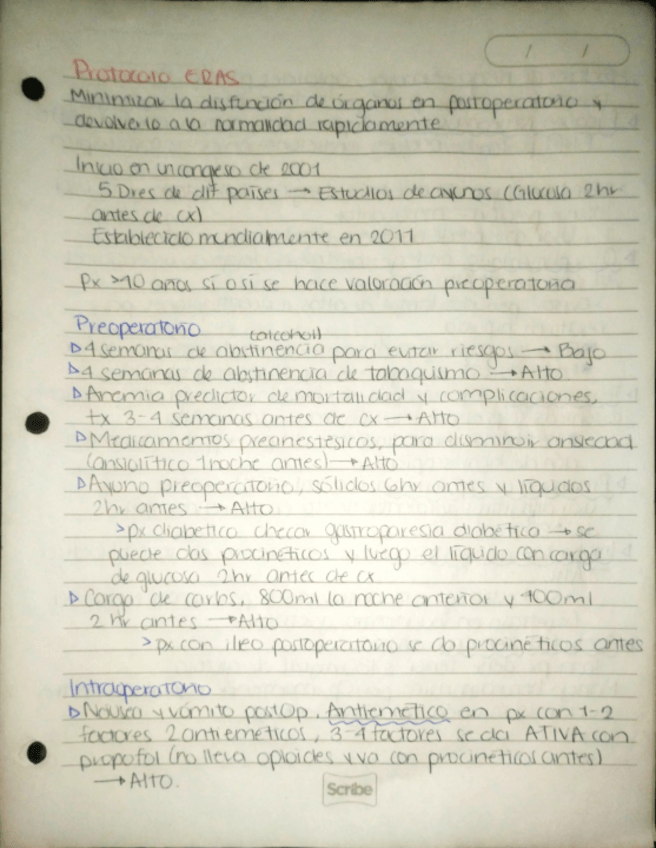 / /
Protocolo ERAS
Minimizar la disfunción de órganos en postoperatorio y
devolverlo a la normalidad rapidamente
Inicio en un congreso de 2001
5 Dres de dif países → Estudios de ayunos (Glucosa 2hr
antes de cx)
Establecido mundialmente en 2011
Px >40 años si o si se hace valoración preoperatoria
Preoperatorio
(alcohol)
▷4 semanas de abstinencia para evitar riesgos → Bajo
▷4 semanas de abstinencia de tabaquismo → Alto
▷Anemia predictor de mortalidad y complicaciones,
tx 3-4 semanas antes de cx → Alto
▷Medicamentos preanestésicos, para disminuir ansiedad
(ansiolítico 1 noche antes) → Alto
▷Ayuno preoperatorio, sólidos 6hr antes y líquidos
2hr antes → Alto
>px diabetico checar gastroparesia diabética → se
puede das procinéticos y luego el líquido con carga
de glucosa 2hr antes de cx
▷Carga de carbs, 800ml la noche anterior y 400ml
2 hr antes → Alto
>px con ileo postoperatorio se da procinéticos antes
Intraoperatorio
▷Náusea y vómito postop, Antiemético en px con 1-2
factores 2 antieméticos, 3-4 factores se da ATIVA con
propofol (no lleva opioides y va con procinéticos antes)
→ Alto.
Scribe